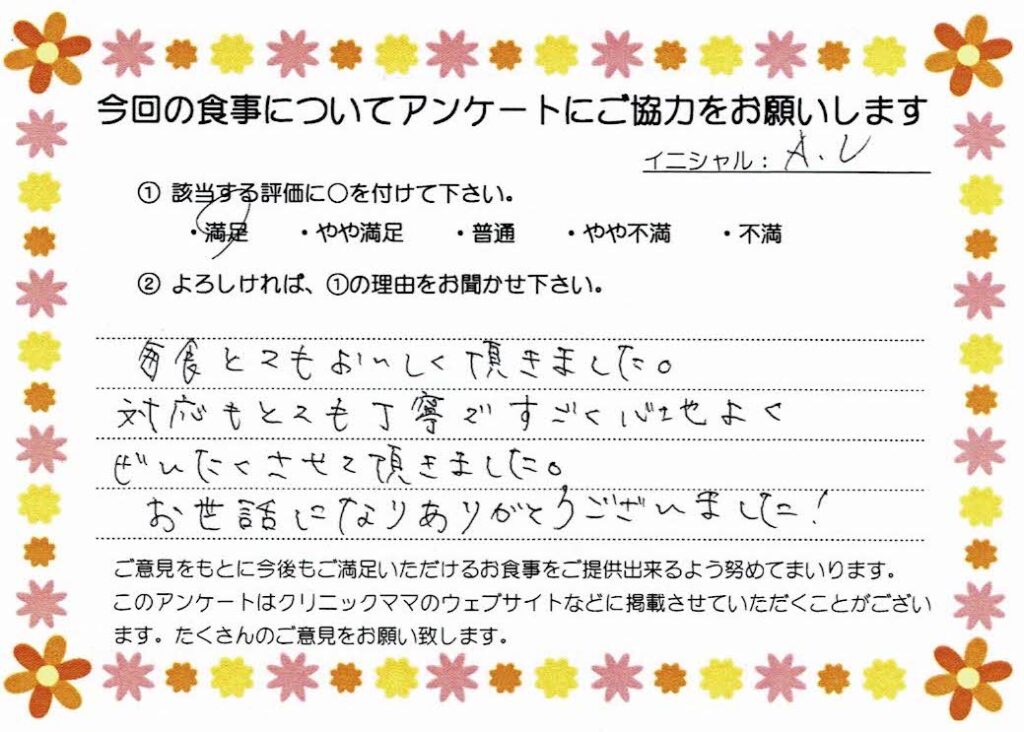 今回の食事についてアンケートにご協力をお願いします
イニシャル： A.U
① 該当する評価に〇を付けて下さい。
・満足 ・やや満足 ・普通 ・やや不満 ・不満
② よろしければ、①の理由をお聞かせ下さい。
毎食とてもおいしく頂きました。
対応もとても丁寧ですごく心地よく
ぜいたくさせて頂きました。
お世話になりありがとうございました!
ご意見をもとに今後もご満足いただけるお食事をご提供出来るよう努めてまいります。
このアンケートはクリニックママのウェブサイトなどに掲載させていただくことがござい
ます。たくさんのご意見をお願い致します。